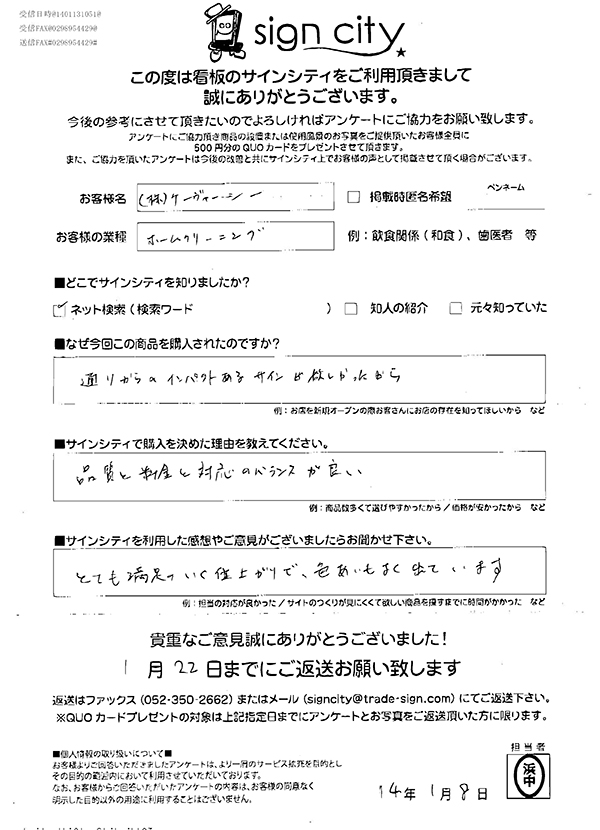 受信日時@1401131051@
受信FAX@0298954429@
送信FAX#0298954429#
sign city
この度は看板のサインシティをご利用頂きまして
誠にありがとうございます。
今後の参考にさせて頂きたいのでよろしければアンケートにご協力をお願い致します。
アンケートにご協力頂き商品の設置または使用風景のお写真をご提供頂いたお客様全員に
500円分のQUOカードをプレゼントさせて頂きます。
また、ご協力を頂いたアンケートは今後の改善と共にサインシティ上でお客様の声として掲載させて頂く場合がございます。
お客様名 (株)ケーヴィーシー □ 掲載時匿名希望 ペンネーム
お客様の業種 ホームクリーニング 例：飲食関係(和食)、歯医者 等
■どこでサインシティを知りましたか?
☑ ネット検索(検索ワード ) □ 知人の紹介 □ 元々知っていた
■なぜ今回この商品を購入されたのですか?
通りからのインパクトあるサインが欲しかったから
例：お店を新規オープンの際お客さんにお店の存在を知ってほしいから など
■サインシティで購入を決めた理由を教えてください。
品質と料金と対応のバランスが良い
例：商品数多くて選びやすかったから/価格が安かったから など
■サインシティを利用した感想やご意見がございましたらお聞かせ下さい。
とても満足のいく仕上がりで、色あいもよく出ています
例：担当の対応が良かった/サイトのつくりが見にくくて欲しい商品を探すまでに時間がかかった など
貴重なご意見誠にありがとうございました!
1月22日までにご返送お願い致します
返送はファックス(052-350-2662)またはメール(signcity@trade-sign.com)にてご返送下さい。
※QUOカードプレゼントの対象は上記指定日までにアンケートとお写真をご返送頂いた方に限ります。
■個人情報の取り扱いについて■
お客様よりご回答いただきましたアンケートは、より一層のサービス拡充を目的とし
その目的の範囲内において利用させていただいております。
なお、お客様からご回答いただいたアンケートの内容は、お客様の同意なく
明示した目的以外の用途に利用することはございません。
担当者
浜中
14年1月8日